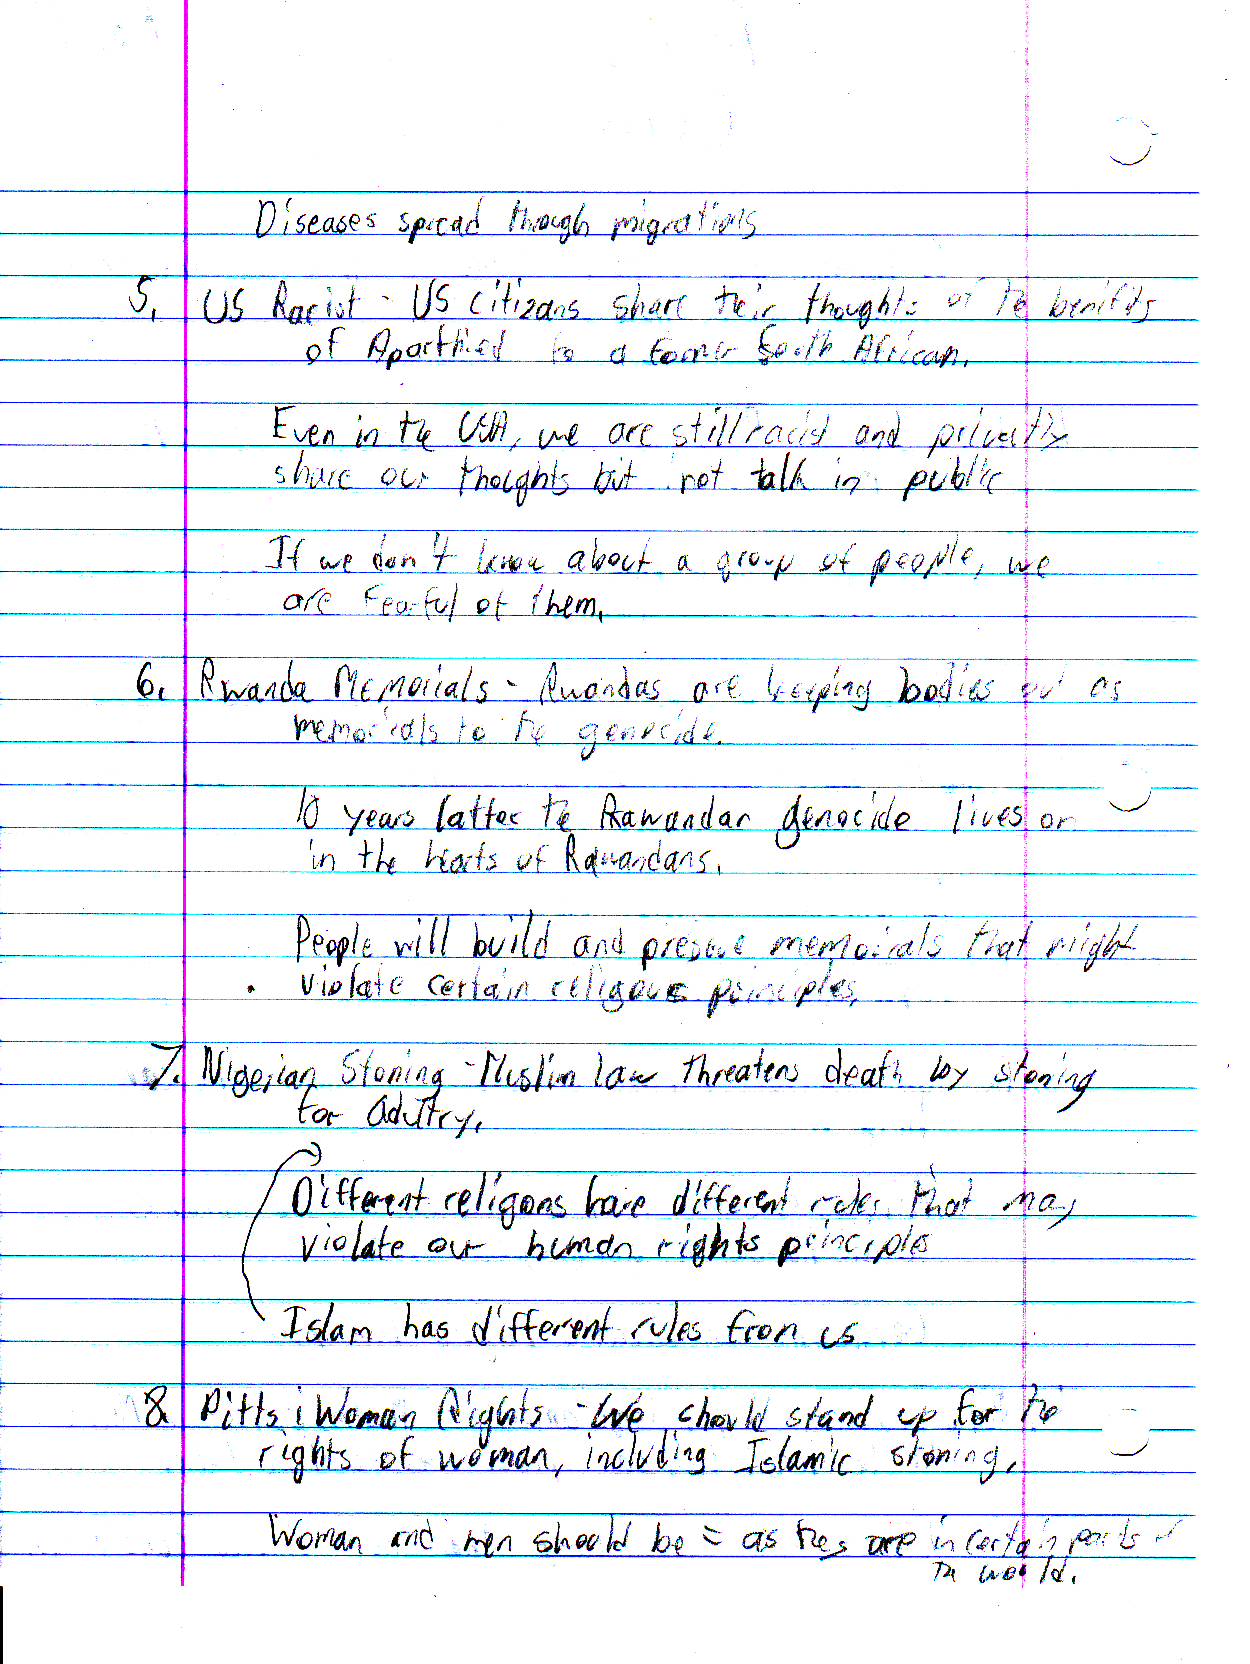 Diseases spread through migrations
5. US Racist - US Citizans share their thoughts of the benifits
of Aparthied to a former South African.
Even in the USA, we are still racist and privatly
share our thoughts but not talk in public
If we don't know about a group of people, we
are fearful of them.
6. Rwanda Memorials - Rwandas are keeping bodies out as
memorials to the genocide.
10 years latter the Rawandan genocide lives on
in the hearts of Rawandans.
People will build and preserve memoirals that might
violate certain religous principles.
7. Nigerian Stoning - Muslim law threatens death by stoning
for adultry.
Different religons have different rules that may
violate our human rights principles
Islam has different rules from us
8. Pitts; Woman Rights - We should stand up for the
rights of woman, including Islamic stoning.
Woman and men should be = as they are in certain parts of
the world.